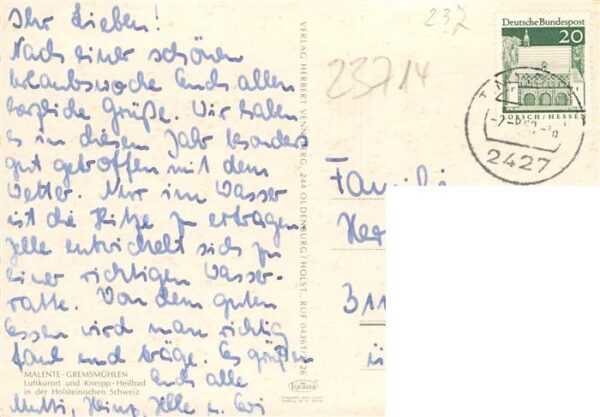 Ihr Lieben!
Nach einer schönen
Urlaubswoche Euch allen
herzliche Grüße. Wir haben
es in diesem Jahr besonders
gut getroffen mit dem
Wetter. Nur im Wasser
ist die Hitze zu ertragen
Jelle entwickelt sich zu
einer richtigen Wasser-
ratte. Von dem guten
Essen wird man richtig
faul und träge. Es grüßen
Euch alle
Mutti, Heinz, Jelle u. Evi
MALENTE-GREMSMÜHLEN
Luftkurort und Kneipp-Heilbad
in der Holsteinischen Schweiz
VERLAG HERBERT VENNBERG, 244 OLDENBURG/HOLST. RUF 04361/
Krüger
237
23714
Deutsche Bundespost
20
LORSCH/HESSEN
2427
Familie
Her
311